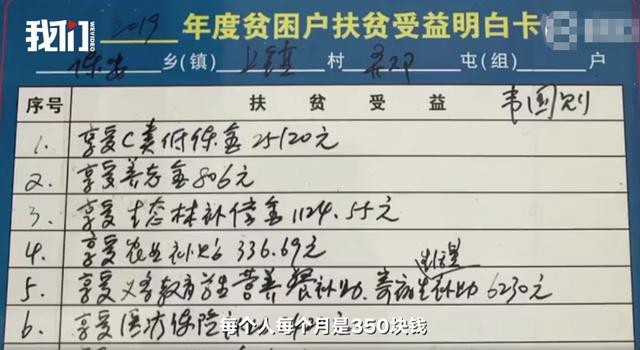 我们 WEVIDEO
2019 年度贫困户扶贫受益明白卡
保安 乡(镇) 镇 村 屯(组) 户
序号 扶贫受益 韦国则
1. 享受C类低保金25120元
2. 享受养老金806元
3. 享受生态林补偿金1124.55元
4. 享受农业补贴336.69元
5. 享受义务教育学生营养餐补助、寄宿生补助6230元
6. 享受医疗保险
每个人每个月是350块钱